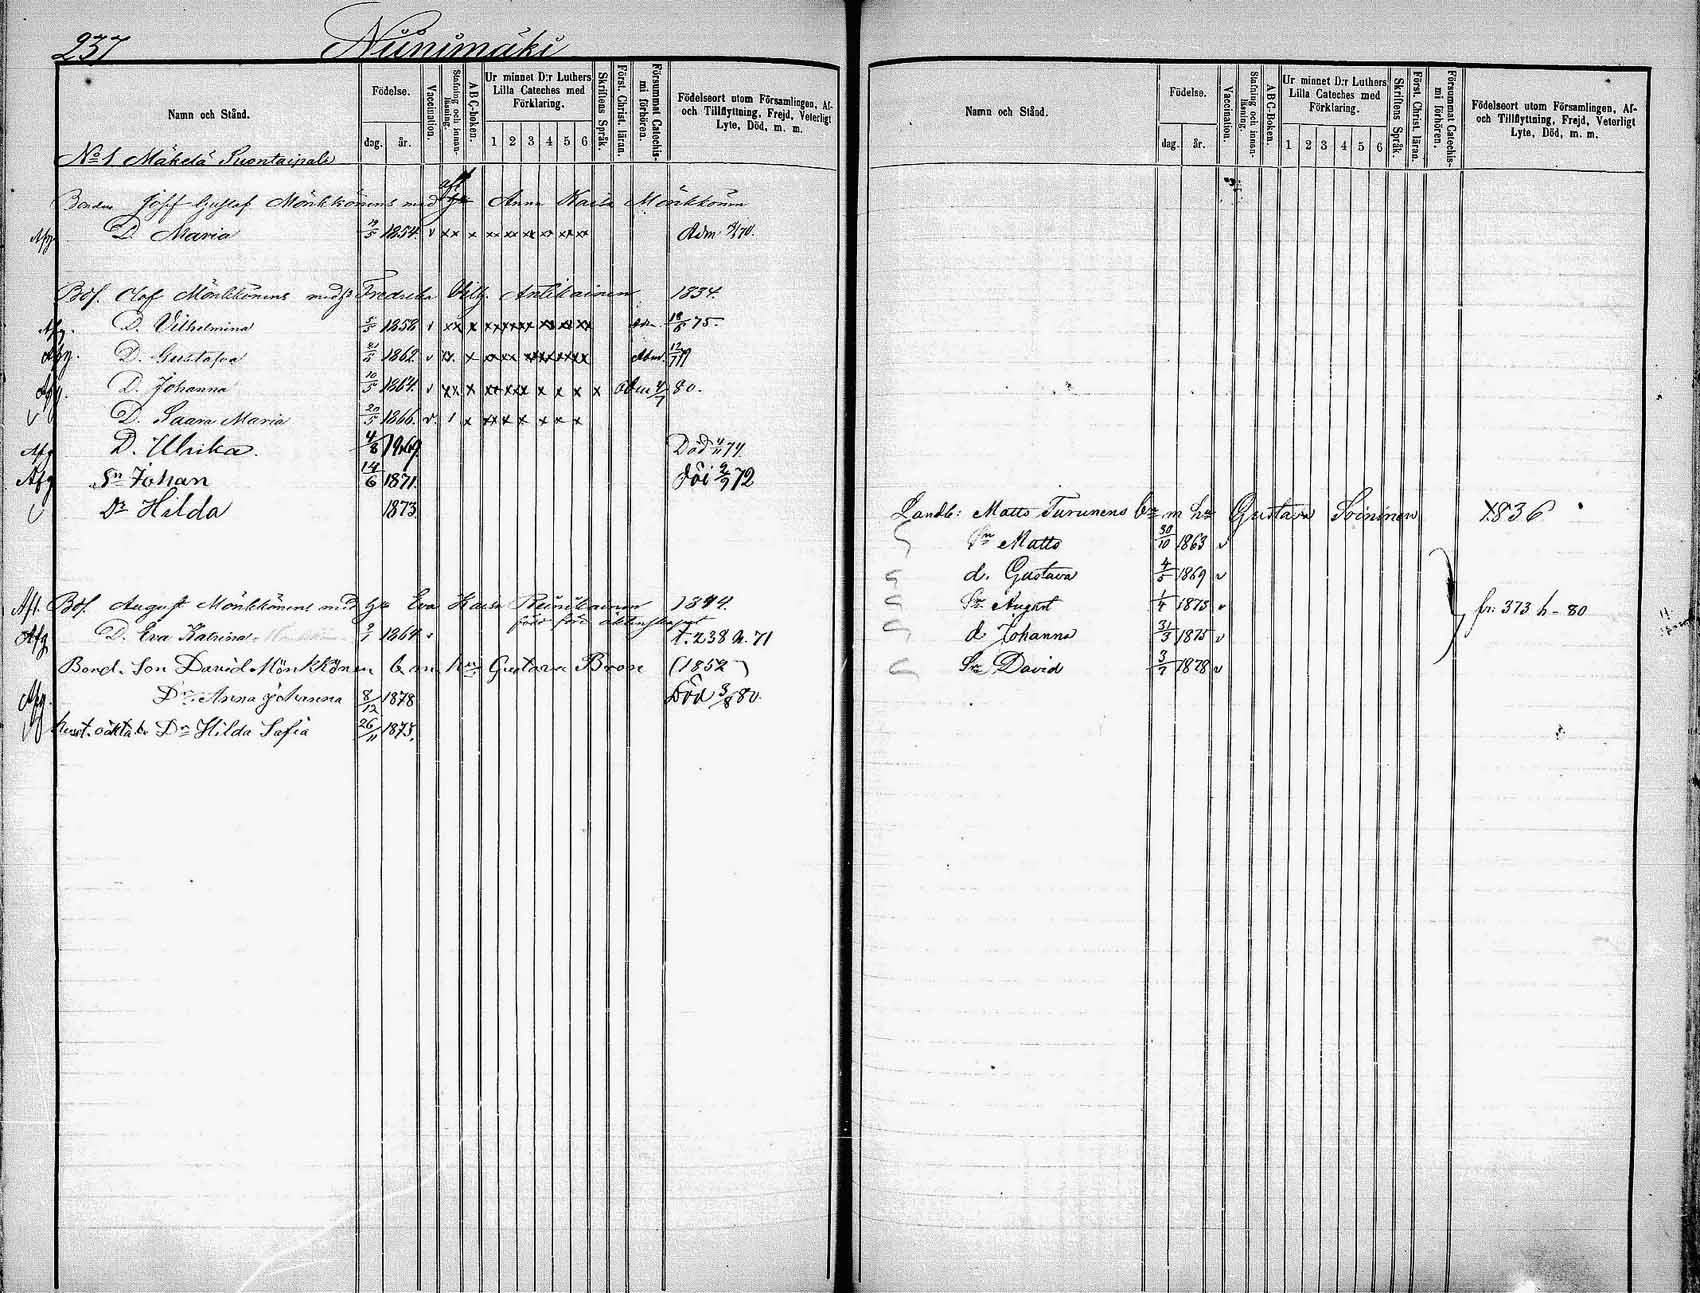 237 Niinimäki
Namn och Stånd.
Födelse.
dag. år.
Vaccination.
Stafning och innanläsning.
A B C-boken.
Ur minnet D:r Luthers Lilla Cateches med Förklaring.
1 2 3 4 5 6
Skriftens Språk.
Först. Christ. läran.
Försummat Catechismi förhören.
Födelseort utom Församlingen, Af- och Tillflyttning, Frejd, Veterligt Lyte, Död, m. m.
No 1 Mäkelä Suontaipale
Bonden Josef Gustaf Mönkkönens med Anna Kaisa Mönkkönen
Afg. D. Maria 5 1854 v xx x xx xx xx Adm 70.
Bof. Olof Mönkkönens med h. Fredrika Antikainen 1834.
Afg. D. Vilhelmina 5/5 1858 v xx x xxxxx xx xx Adm. 18/6 75.
Afg. D. Gustafva 1862 v xx x xxx xxxxxx Adm. 12/7 79
Afg. D. Johanna 10/5 1864 v xxx x xxxx x x x x x Adm 4/7 80.
D. Saara Maria 20/5 1866 v. 1 x xx x x x x x
Afg D. Ulrika. 4/8 1869 Död 4/11 74.
Afg Sn Johan 14/6 1871. Död 2/9 72
Dr Hilda 1873
Aft. Bof. August Mönkkönens med h. Eva Kaisa Reinikainen 1844.
född före äktenskapet
Afg D. Eva Katrina 1864 t. 238 a. 71
Bond. Son David Mönkkönen b an. hu Gustava Broon (1852)
Afg. Dr. Anna Johanna 8/12 1878 Död 3/8 80.
hust. oäkta b. Dr Hilda Sofia 26/11 1873.
Namn och Stånd.
Födelse.
dag. år.
Vaccination.
Stafning och innanläsning.
A B C-Boken.
Ur minnet D:r Luthers Lilla Cateches med Förklaring.
1 2 3 4 5 6
Skriftens Språk.
Först. Christ. läran.
Försummat Catechismi förhören.
Födelseort utom Församlingen, Af- och Tillflyttning, Frejd, Veterligt Lyte, Död, m. m.
Landb: Matts Turunens bn m hu Gustava Soininen 1836
Sn Matts 30/10 1863 v
d. Gustava 4/5 1869 v
Sn August 1/4 1873 v fr: 373 h - 80
d Johanna 31/3 1875 v
Sn David 3/7 1878 v